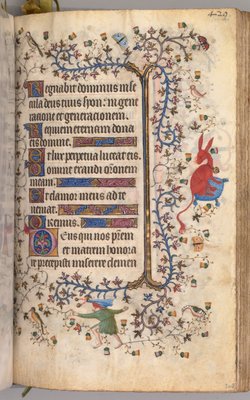 Regnabit dominus in se
cula deus tuus syon: in gene
racione et generacionem.
Requiem eternam dona
eis domine.
Et lux perpetua luceat eis.
Domine exaudi orōnem
meam.
Et clamor meus ad te
veniat.
Oremus.
Deus qui nos prēm
et matrem honora
re precepisti miserere clemen